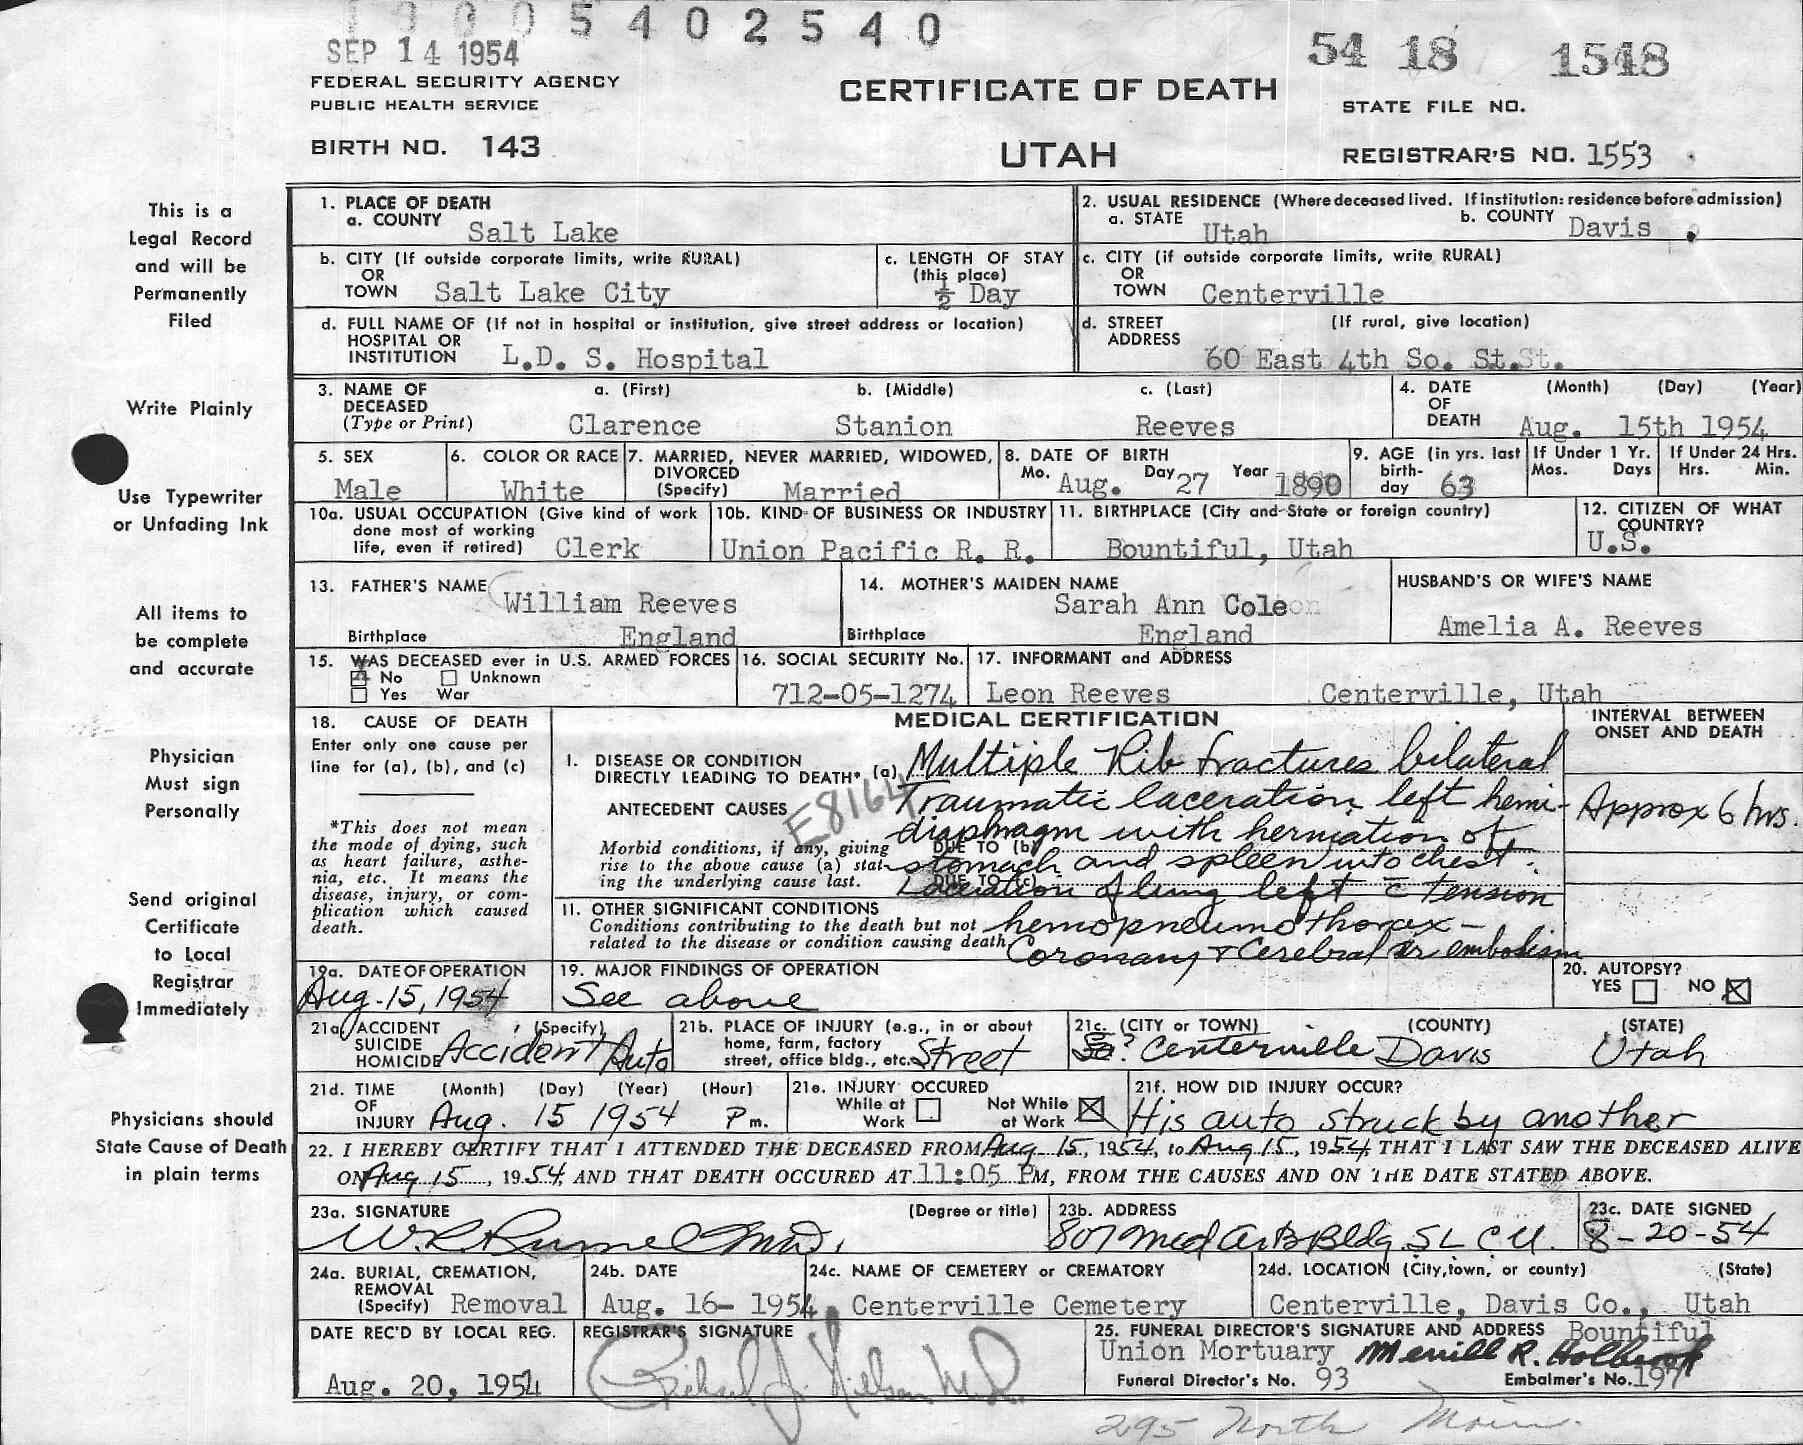 0005402540
SEP 14 1954
54 18 1518
FEDERAL SECURITY AGENCY
PUBLIC HEALTH SERVICE
CERTIFICATE OF DEATH
STATE FILE NO.
BIRTH NO. 143
UTAH
REGISTRAR'S NO. 1553
This is a
Legal Record
and will be
Permanently
Filed
Write Plainly
Use Typewriter
or Unfading Ink
All items to
be complete
and accurate
Physician
Must sign
Personally
Send original
Certificate
to Local
Registrar
Immediately
Physicians should
State Cause of Death
in plain terms
1. PLACE OF DEATH
a. COUNTY Salt Lake
2. USUAL RESIDENCE (Where deceased lived. If institution: residence before admission)
a. STATE Utah b. COUNTY Davis
b. CITY (If outside corporate limits, write RURAL)
OR
TOWN Salt Lake City
c. LENGTH OF STAY
(this place)
½ Day
c. CITY (if outside corporate limits, write RURAL)
OR
TOWN Centerville
d. FULL NAME OF (If not in hospital or institution, give street address or location)
HOSPITAL OR
INSTITUTION L.D. S. Hospital
d. STREET (If rural, give location)
ADDRESS 60 East 4th So. St.St.
3. NAME OF a. (First) b. (Middle) c. (Last)
DECEASED
(Type or Print) Clarence Stanion Reeves
4. DATE (Month) (Day) (Year)
OF
DEATH Aug. 15th 1954
5. SEX
Male
6. COLOR OR RACE
White
7. MARRIED, NEVER MARRIED, WIDOWED,
DIVORCED
(Specify) Married
8. DATE OF BIRTH
Mo. Aug. Day 27 Year 1890
9. AGE (in yrs. last
birth-
day 63
If Under 1 Yr.
Mos. Days
If Under 24 Hrs.
Hrs. Min.
10a. USUAL OCCUPATION (Give kind of work
done most of working
life, even if retired) Clerk
10b. KIND OF BUSINESS OR INDUSTRY
Union Pacific R. R.
11. BIRTHPLACE (City and State or foreign country)
Bountiful, Utah
12. CITIZEN OF WHAT
COUNTRY?
U.S.
13. FATHER'S NAME William Reeves
Birthplace England
14. MOTHER'S MAIDEN NAME
Sarah Ann Cole
Birthplace England
HUSBAND'S OR WIFE'S NAME
Amelia A. Reeves
15. WAS DECEASED ever in U.S. ARMED FORCES
No Unknown
Yes War
16. SOCIAL SECURITY No.
712-05-1274
17. INFORMANT and ADDRESS
Leon Reeves Centerville, Utah
18. CAUSE OF DEATH
Enter only one cause per
line for (a), (b), and (c)
*This does not mean
the mode of dying, such
as heart failure, asthe-
nia, etc. It means the
disease, injury, or com-
plication which caused
death.
MEDICAL CERTIFICATION
INTERVAL BETWEEN
ONSET AND DEATH
I. DISEASE OR CONDITION
DIRECTLY LEADING TO DEATH* (a) Multiple Rib fractures bilateral
ANTECEDENT CAUSES E8164 Traumatic laceration left hemi-
diaphragm with herniation of
Approx 6 hrs.
Morbid conditions, if any, giving DUE TO (b)
rise to the above cause (a) stat- stomach and spleen into chest.
ing the underlying cause last. DUE TO (c) Laceration of lung left c̄ tension
II. OTHER SIGNIFICANT CONDITIONS
Conditions contributing to the death but not hemopneumothorax -
related to the disease or condition causing death Coronary & Cerebral air embolism
19a. DATE OF OPERATION
Aug. 15, 1954
19. MAJOR FINDINGS OF OPERATION
See above
20. AUTOPSY?
YES NO
21a. ACCIDENT (Specify)
SUICIDE
HOMICIDE Accident Auto
21b. PLACE OF INJURY (e.g., in or about
home, farm, factory
street, office bldg., etc. Street
21c. (CITY or TOWN) (COUNTY) (STATE)
? Centerville Davis Utah
21d. TIME (Month) (Day) (Year) (Hour)
OF
INJURY Aug. 15 1954 P m.
21e. INJURY OCCURED
While at Work Not While at Work
21f. HOW DID INJURY OCCUR?
His auto struck by another
22. I HEREBY CERTIFY THAT I ATTENDED THE DECEASED FROM Aug 15, 1954, to Aug 15, 1954, THAT I LAST SAW THE DECEASED ALIVE
ON Aug 15, 1954, AND THAT DEATH OCCURED AT 11:05 PM, FROM THE CAUSES AND ON THE DATE STATED ABOVE.
23a. SIGNATURE (Degree or title)
23b. ADDRESS
807 Med Arts Bldg. SLC U.
23c. DATE SIGNED
8-20-54
24a. BURIAL, CREMATION,
REMOVAL
(Specify) Removal
24b. DATE
Aug. 16- 1954
24c. NAME OF CEMETERY or CREMATORY
Centerville Cemetery
24d. LOCATION (City, town, or county) (State)
Centerville, Davis Co., Utah
DATE REC'D BY LOCAL REG.
Aug. 20, 1954
REGISTRAR'S SIGNATURE
Richard J. Nielsen M.D.
25. FUNERAL DIRECTOR'S SIGNATURE AND ADDRESS Bountiful
Union Mortuary Merrill R. Holbrook
Funeral Director's No. 93 Embalmer's No. 197
295 North Main.